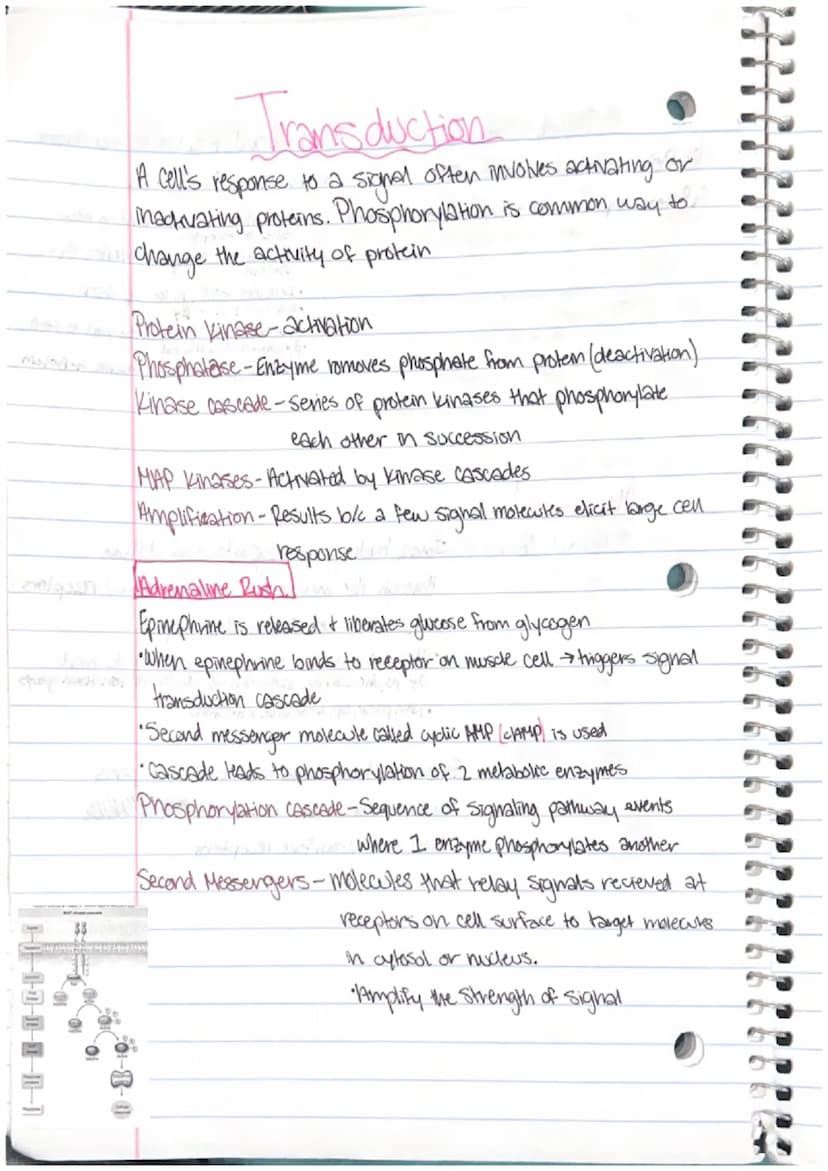 Transduction
A cell's response to a signal often involves activating or
inactivating proteins. Phosphorylation is common way to
change the activity of protein
Protein kinase - activation
Phosphatase - Enzyme removes phosphate from protein (deactivation)
Kinase cascade - series of protein kinases that phosphorylate
each other in succession
MAP kinases - Activated by kinase cascades
Amplification - Results b/c a few signal molecules elicit large cell
response
Adrenaline Rush
Epinephrine is released + liberates glucose from glycogen
•When epinephrine binds to receptor on muscle cell → triggers signal
transduction cascade
•Second messenger molecule called cyclic AMP (cAMP) is used
•Cascade leads to phosphorylation of 2 metabolic enzymes
Phosphorylation cascade - Sequence of signaling pathway events
where 1 enzyme phosphorylates another
Second Messengers - molecules that relay signals recieved at
receptors on cell surface to target molecules
in cytosol or nucleus.
•Amplify the strength of signal